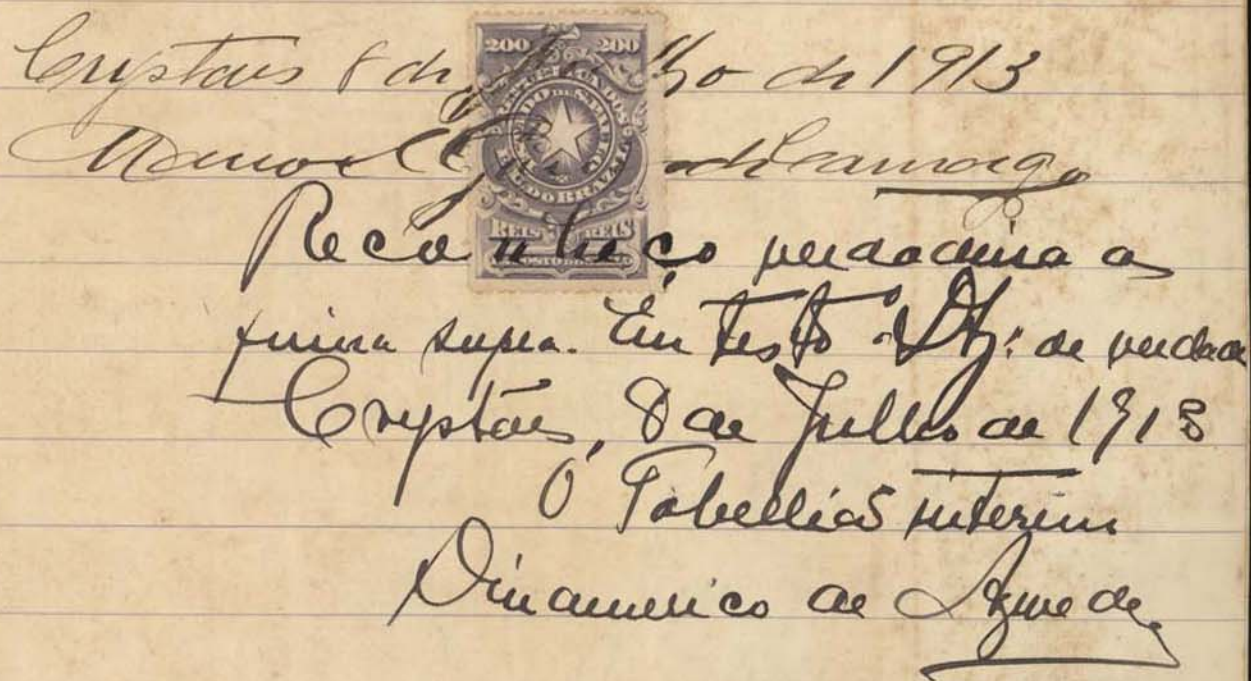 Crystaes 8 de Julho de 1913
Manoel de Camargo
200 200
ESTADOS UNIDOS DO BRAZIL
ESTADO DE S. PAULO
REIS REIS
Reconheço verdadeira a
firma supra. Em testo de verdade
Crystaes, 8 de Julho de 1913
O Tabellião interino
Dinamerico de Azevedo